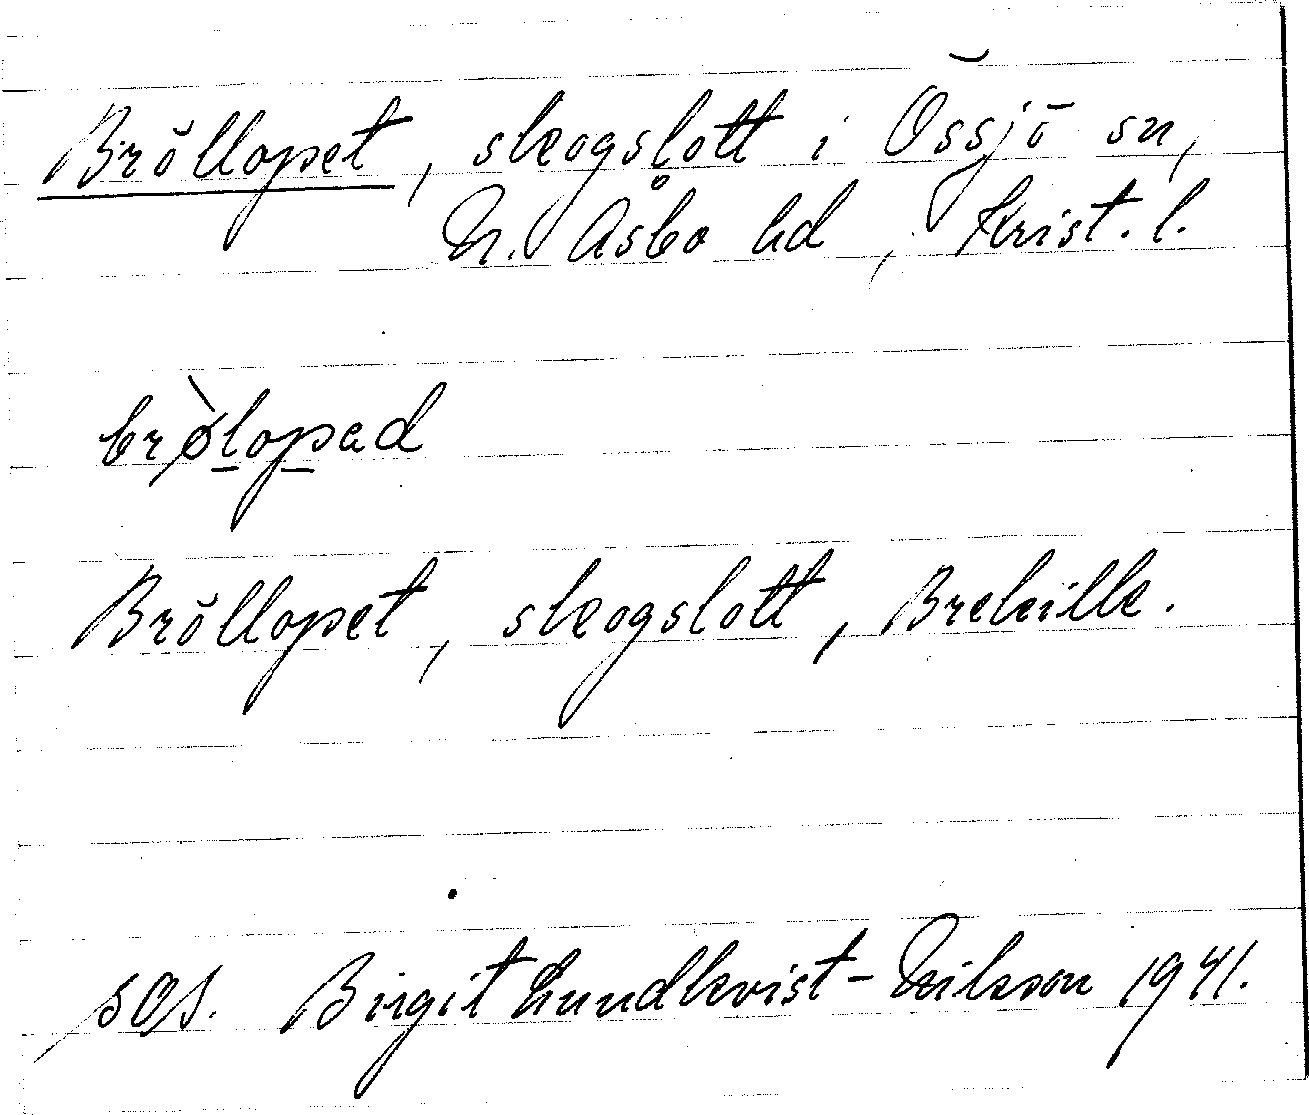 Bröllopet, skogslott i Össjö sn,
N. Åsbo hd, Krist. l.
brø̀lopad
Bröllopet, skogslott, Brekille.
SOS. Birgit Lundkvist-Nilsson 1941.